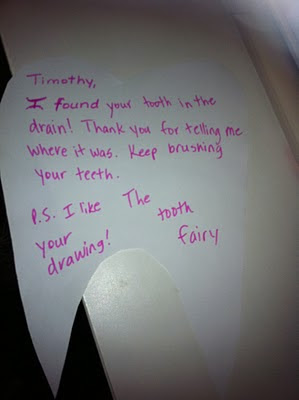 Timothy,
I found your tooth in the
drain! Thank you for telling me
where it was. Keep brushing
your teeth.
The
tooth
fairy
P.S. I like
your
drawing!